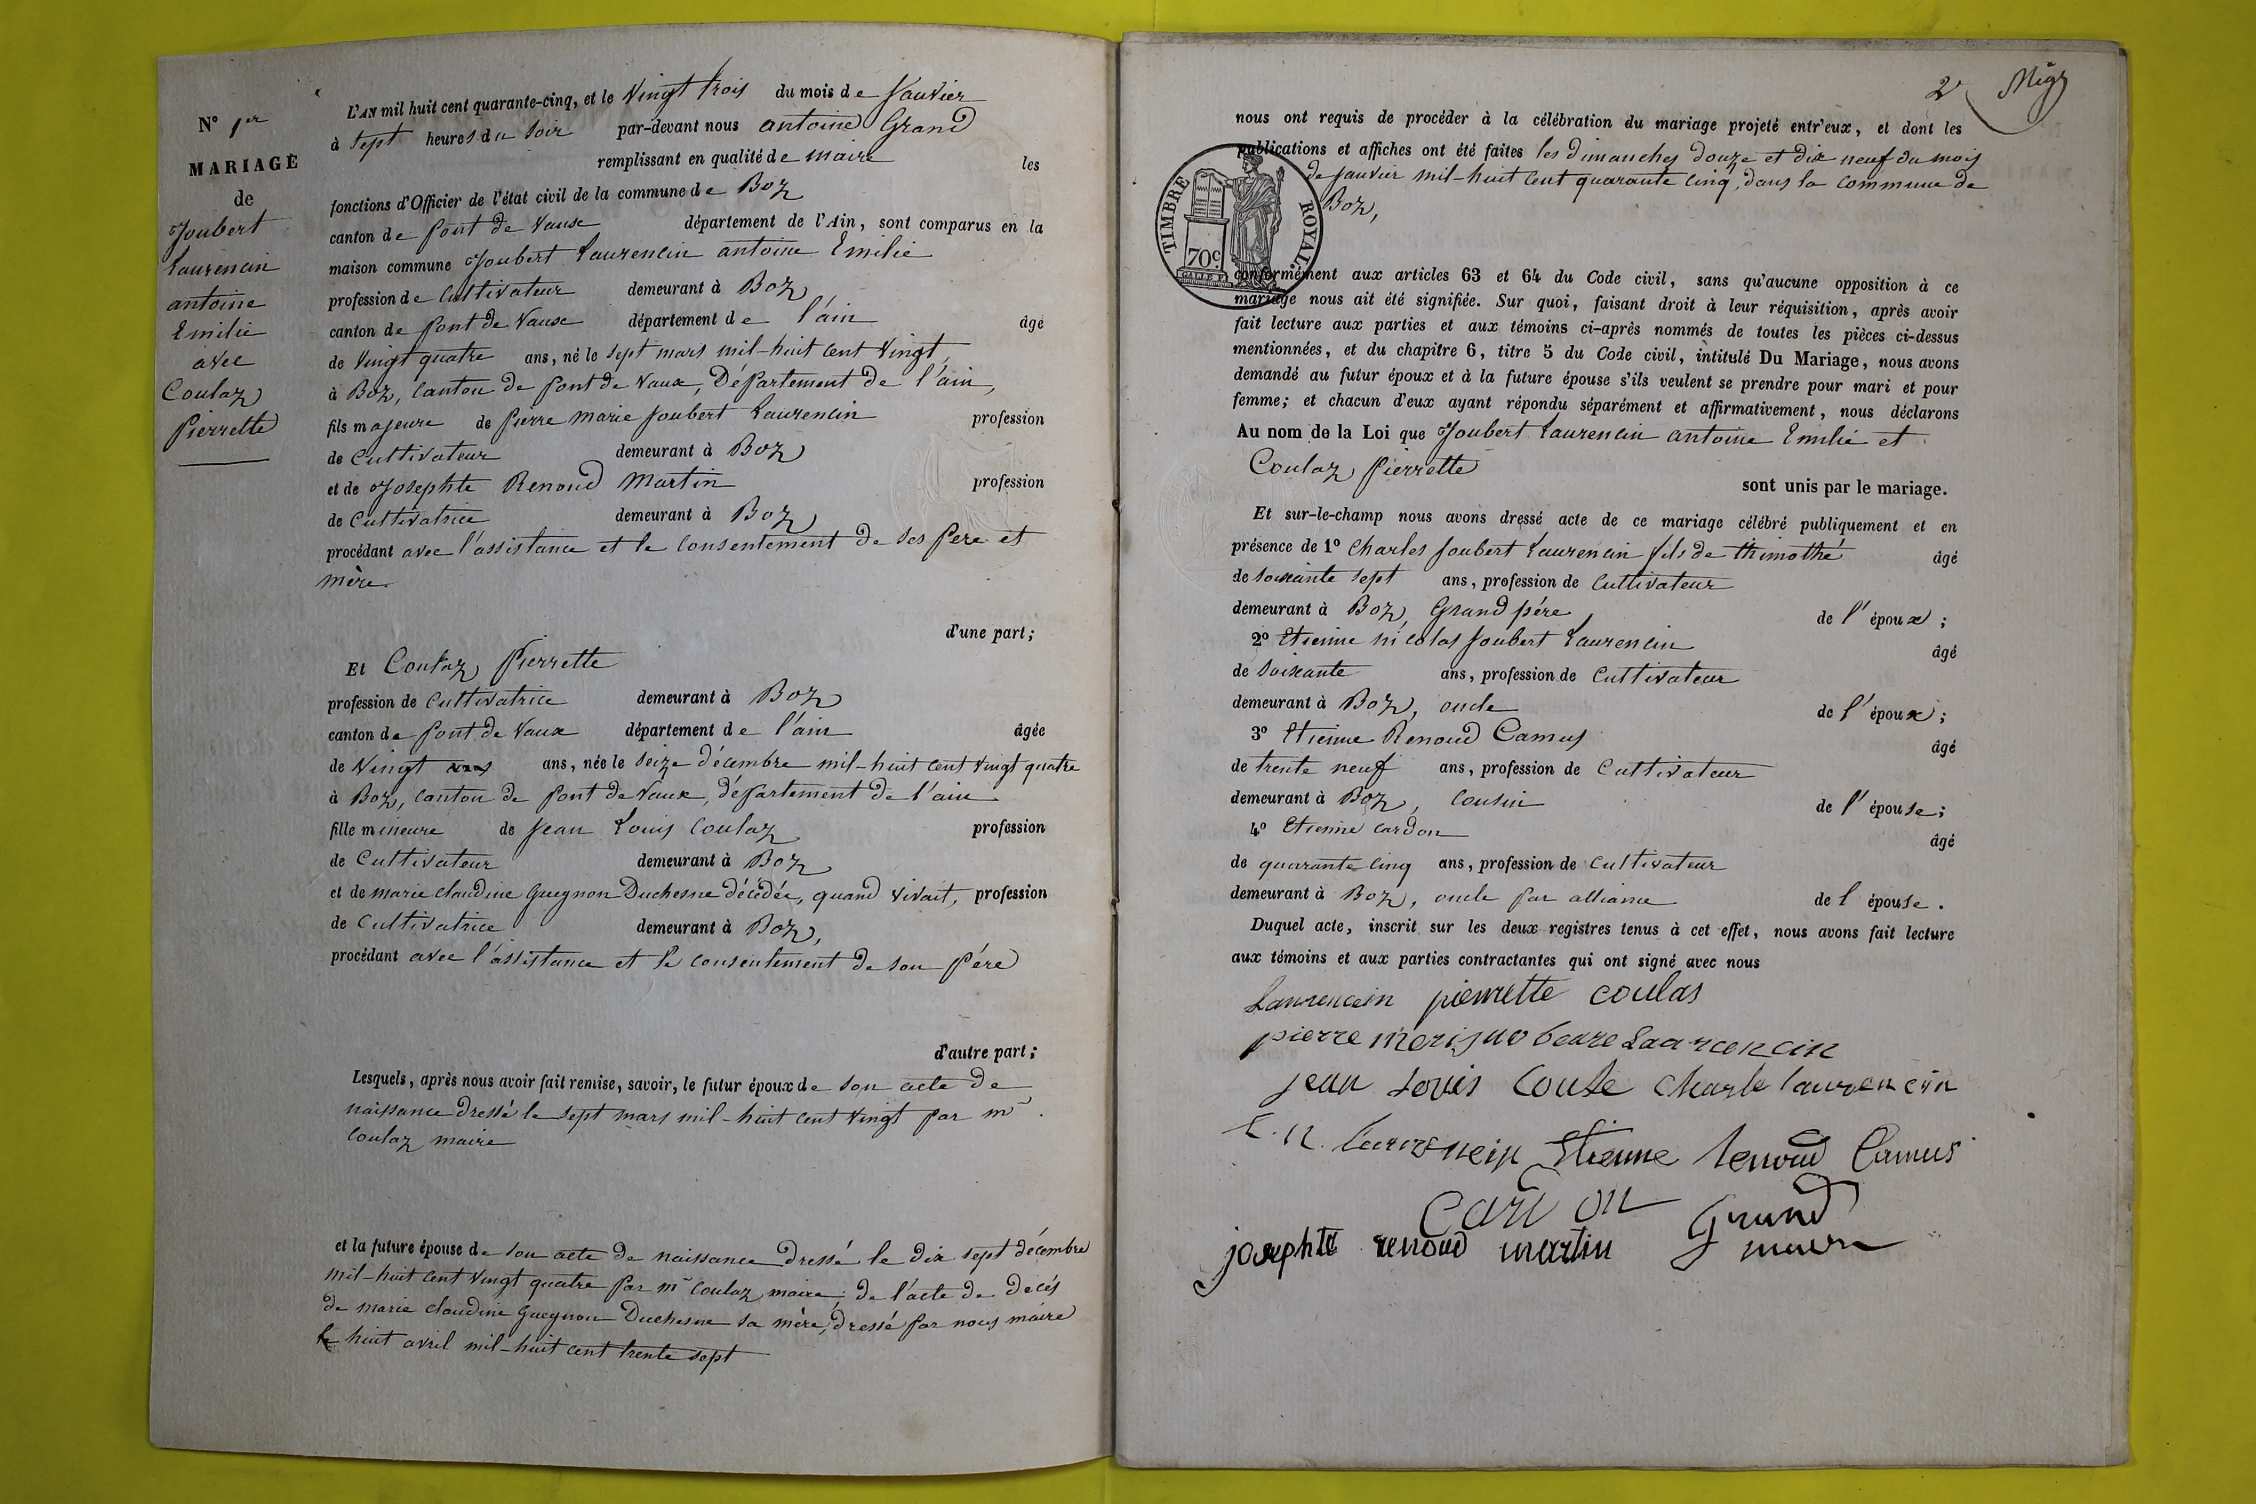 N° 1er
MARIAGE
de
Joubert
Laurencin
antoine
Emilie
avec
Coulaz
Pierrette
L'AN mil huit cent quarante-cinq, et le Vingt trois du mois de Janvier
à sept heures du soir par-devant nous antoine Grand
remplissant en qualité de maire les
fonctions d'Officier de l'état civil de la commune de Boz
canton de pont de Vaux département de l'Ain, sont comparus en la
maison commune Joubert Laurencin antoine Emilie
profession de Cultivateur demeurant à Boz
canton de pont de Vaux département de l'ain âgé
de Vingt quatre ans, né le sept mars mil-huit cent Vingt,
à Boz, canton de pont de Vaux, Département de l'ain,
fils majeure de Pierre marie Joubert Laurencin profession
de Cultivateur demeurant à Boz
et de Josephte Renoud Martin profession
de Cultivatrice demeurant à Boz
procédant avec l'assistance et le consentement de ses Pere et
mère.
d'une part;
Et Coulaz Pierrette
profession de Cultivatrice demeurant à Boz
canton de pont de Vaux département de l'ain âgée
de Vingt ans, née le seize décembre mil-huit cent vingt quatre
à Boz, canton de pont de Vaux, département de l'ain
fille mineure de Jean Louis Coulaz profession
de Cultivateur demeurant à Boz
et de marie claudine Gueynon Duchesne décédée, quand vivait, profession
de Cultivatrice demeurant à Boz,
procédant avec l'assistance et le consentement de son Père
d'autre part;
Lesquels, après nous avoir fait remise, savoir, le futur époux de son acte de
naissance dressé le sept mars mil-huit cent vingt par mr
Coulaz maire
et la future épouse de son acte de naissance dressé le dix sept décembre
mil-huit cent vingt quatre par mr Coulaz maire; de l'acte de decés
de marie claudine Gueynon Duchesne sa mère, dressé par nous maire
le huit avril mil-huit cent trente sept
2
nous ont requis de procéder à la célébration du mariage projeté entr'eux, et dont les
publications et affiches ont été faites les dimanches douze et dix neuf du mois
de Janvier mil-huit cent quarante cinq, dans la commune de
Boz,
TIMBRE ROYAL.
70c
conformément aux articles 63 et 64 du Code civil, sans qu'aucune opposition à ce
mariage nous ait été signifiée. Sur quoi, faisant droit à leur réquisition, après avoir
fait lecture aux parties et aux témoins ci-après nommés de toutes les pièces ci-dessus
mentionnées, et du chapitre 6, titre 5 du Code civil, intitulé Du Mariage, nous avons
demandé au futur époux et à la future épouse s'ils veulent se prendre pour mari et pour
femme; et chacun d'eux ayant répondu séparément et affirmativement, nous déclarons
Au nom de la Loi que Joubert Laurencin antoine Emilie et
Coulaz Pierrette
sont unis par le mariage.
Et sur-le-champ nous avons dressé acte de ce mariage célébré publiquement et en
présence de 1° Charles Joubert Laurencin fils de thimothé âgé
de soixante sept ans, profession de Cultivateur
demeurant à Boz, Grand père de l'époux;
2° Etienne nicolas Joubert Laurencin âgé
de soixante ans, profession de Cultivateur
demeurant à Boz, oncle de l'époux;
3° Etienne Renoud Camus âgé
de trente neuf ans, profession de Cultivateur
demeurant à Boz, cousin de l'épouse;
4° Etienne Cardon âgé
de quarante cinq ans, profession de Cultivateur
demeurant à Boz, oncle par alliance de l épouse.
Duquel acte, inscrit sur les deux registres tenus à cet effet, nous avons fait lecture
aux témoins et aux parties contractantes qui ont signé avec nous
Laurencin pierrette coulas
pierre Laarcencin
jean Louis Charle laurencin
E. N. Etienne renoud Camus
Cardon Grand
josephte renoud martin maire